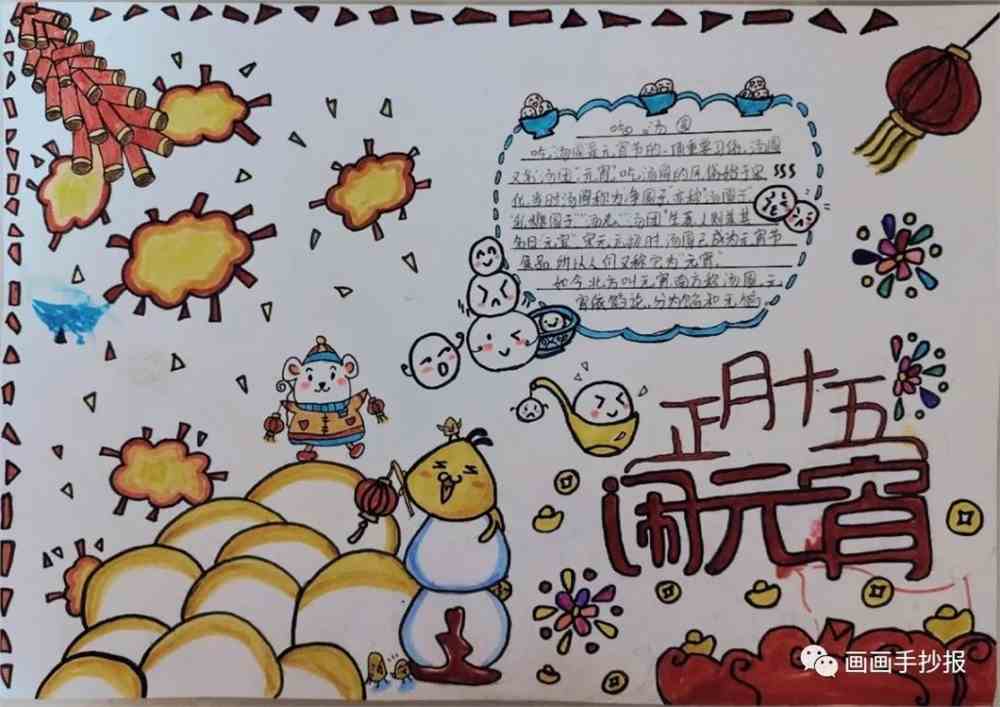 吃汤圆
吃汤圆是元宵节的一项重要习俗,汤圆
又名"汤团""元宵"吃汤圆的风俗始于宋
代,当时汤圆称为"浮圆子"亦称"汤圆子"
"乳糖圆子""汤丸""汤团"生意人则美其
名曰"元宝" 时,汤圆已成为元宵节
食品,所以人们又称它为"元宵"
如今,北方叫元宵,南方称汤圆,元
宵依馅论,分为馅和无馅.
正月十五
闹元宵
画画手抄报